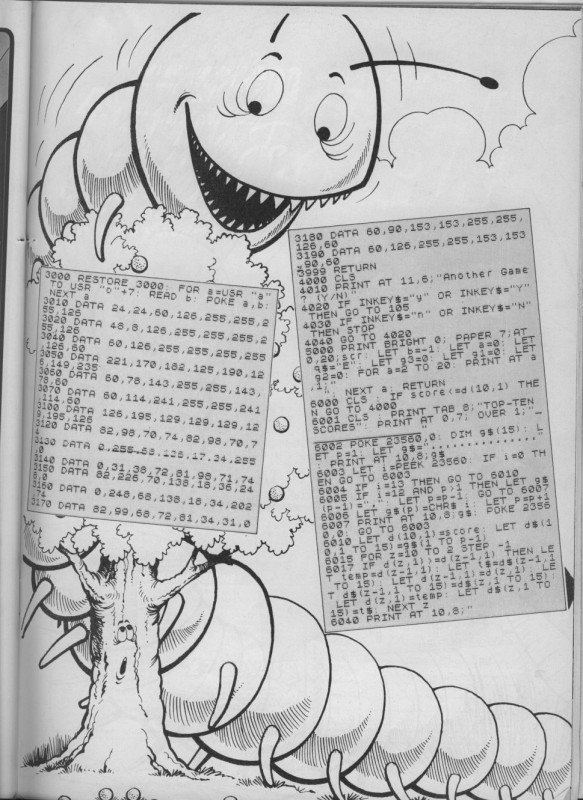 3000 RESTORE 3000: FOR a=USR "a"
TO USR "p"+7: READ b: POKE a,b:
NEXT a
3010 DATA 24,24,60,126,255,255,2
55,126
3020 DATA 48,8,126,255,255,255,2
55,126
3040 DATA 60,126,255,255,255,255
,126,60
3050 DATA 221,170,162,125,190,12
6,149,235
3060 DATA 60,78,143,255,255,143,
78,60
3070 DATA 60,114,241,255,255,241
,114,60
3100 DATA 126,195,129,129,129,12
9,195,126
3120 DATA 82,98,70,74,82,98,70,7
4
3130 DATA 0,255,68,136,17,34,255
,0
3140 DATA 0,31,38,72,81,98,71,74
3150 DATA 82,226,70,138,18,36,24
8,0
3160 DATA 0,248,68,138,18,34,202
,74
3170 DATA 82,99,68,72,81,34,31,0
3180 DATA 60,90,153,153,255,255,
126,60
3190 DATA 60,126,255,255,153,153
,90,60
3999 RETURN
4000 CLS
4010 PRINT AT 11,6;"Another Game
? (Y/N)"
4020 IF INKEY$="y" OR INKEY$="Y"
THEN GO TO 105
4030 IF INKEY$="n" OR INKEY$="N"
THEN STOP
4040 GO TO 4020
5000 PRINT BRIGHT 0; PAPER 7;AT
0,0;scr: LET b=-1: LET a=0: LET
q$="E": LET g3=0: LET g1=0: LET
g2=0: FOR a=2 TO 20: PRINT AT a
,1;
: NEXT a: RETURN
6000 CLS : IF score<=d(10,1) THE
N GO TO 4000
6001 CLS : PRINT TAB 8;"TOP-TEN
SCORES": PRINT AT 0,7; OVER 1;"_
6002 POKE 23560,0: DIM g$(15): L
ET p=1: LET g$="..............."
: PRINT AT 10,8;g$
6003 LET i=PEEK 23560: IF i=0 TH
EN GO TO 6003
6004 IF i=13 THEN GO TO 6010
6005 IF i=12 AND p>1 THEN LET g$
(p-1)=".": LET p=p-1: GO TO 6007
6006 LET g$(p)=CHR$ i: LET p=p+1
6007 PRINT AT 10,8;g$: POKE 2356
0,0: GO TO 6003
6010 LET d(10,1)=score: LET d$(1
0,1 TO 15)=g$(1 TO p-1)
6015 FOR z=10 TO 2 STEP -1
6017 IF d(z,1)>=d(z-1,1) THEN LE
T temp=d(z-1,1): LET t$=d$(z-1,1
TO 15): LET d(z-1,1)=d(z,1): LE
T d$(z-1,1 TO 15)=d$(z,1 TO 15):
LET d(z,1)=temp: LET d$(z,1 TO
15)=t$: NEXT z
6040 PRINT AT 10,8;"